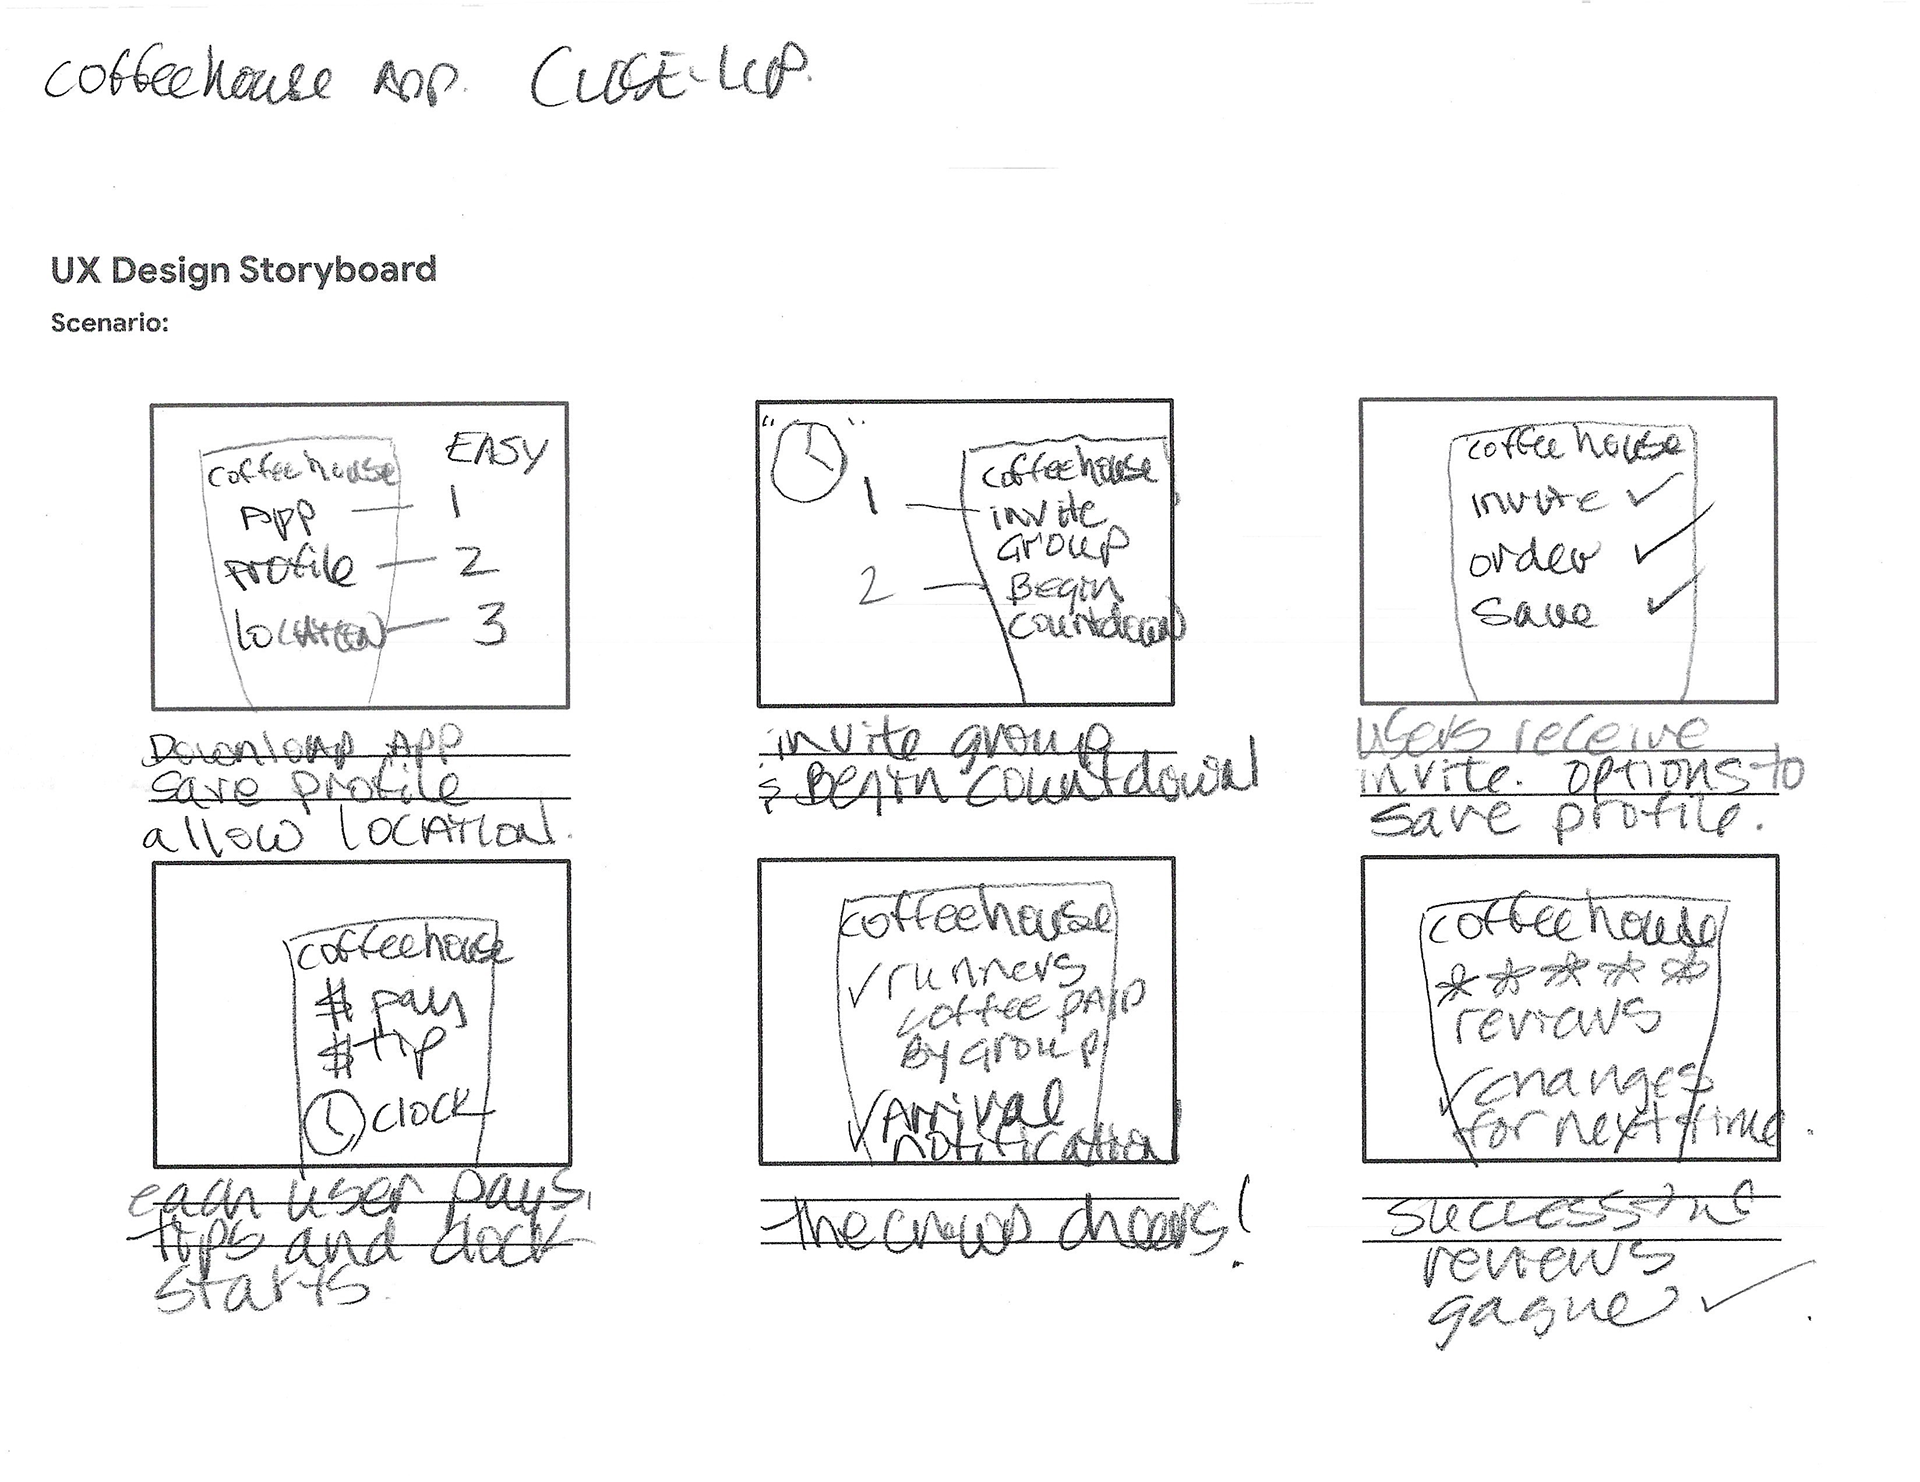 coffeehouse App. CLOSE-UP.
UX Design Storyboard
Scenario:
coffeehouse
EASY
App — 1
profile — 2
LOCATION — 3
Download App
save profile
allow LOCATION.
coffeehouse
1 — invite
Group
2 — Begin
countdown
invite group
& Begin countdown
coffeehouse
invite ✓
order ✓
save ✓
users receive
invite. options to
save profile.
coffeehouse
$ pay
$ tip
clock
each user pays,
tips and clock
starts.
coffeehouse
✓ runners
coffee PAID
By Group
✓ Arrival
notification
the crowd cheers!
coffeehouse
* * * * *
reviews
✓ changes
for next time.
successful
reviews
gague ✓